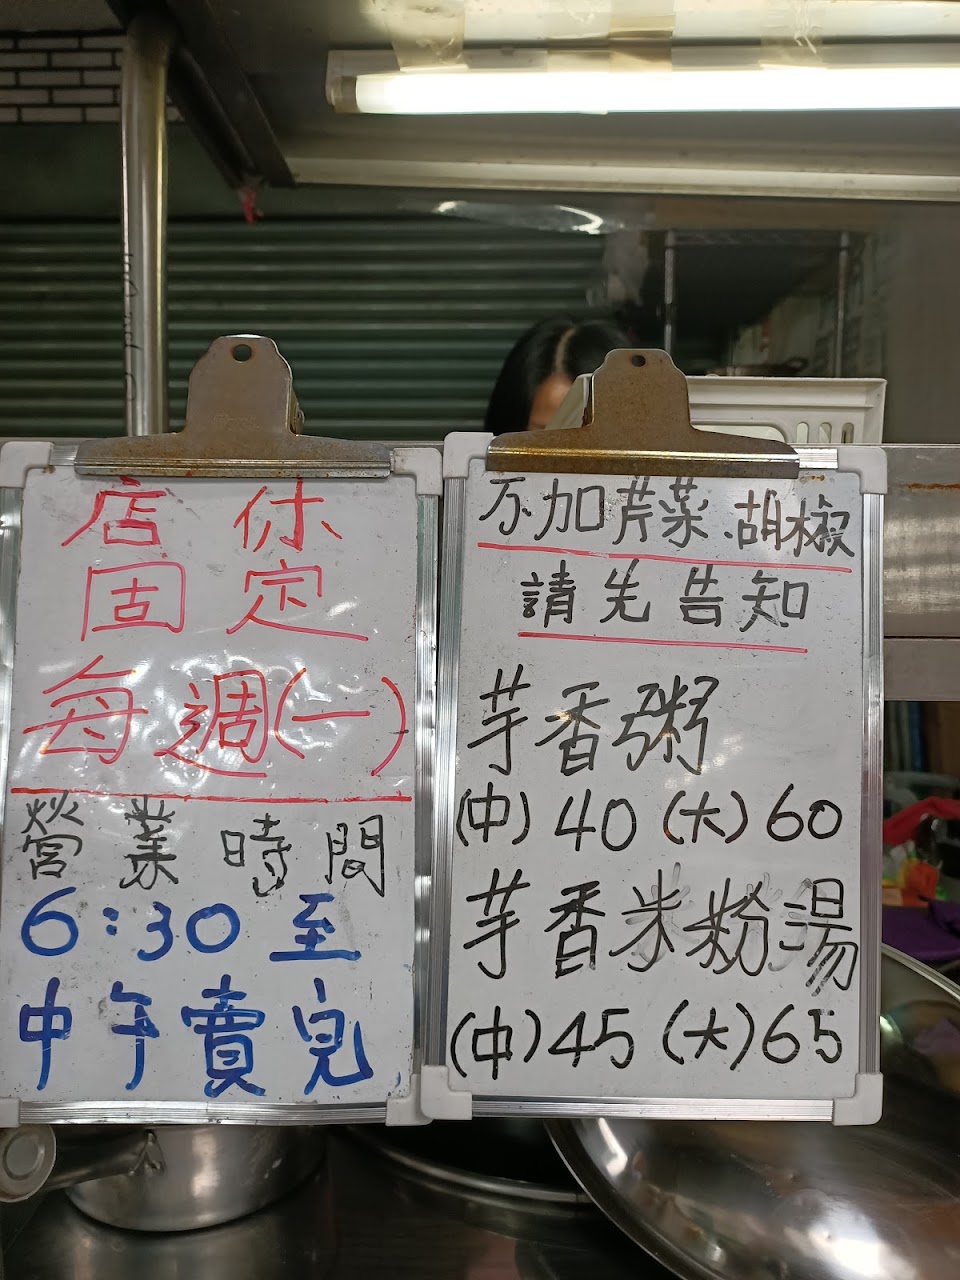 店休
固定
每週(一)
營業時間
6:30至
中午賣完
不加芹菜.胡椒
請先告知
芋香粥
(中)40(大)60
芋香米粉湯
(中)45(大)65